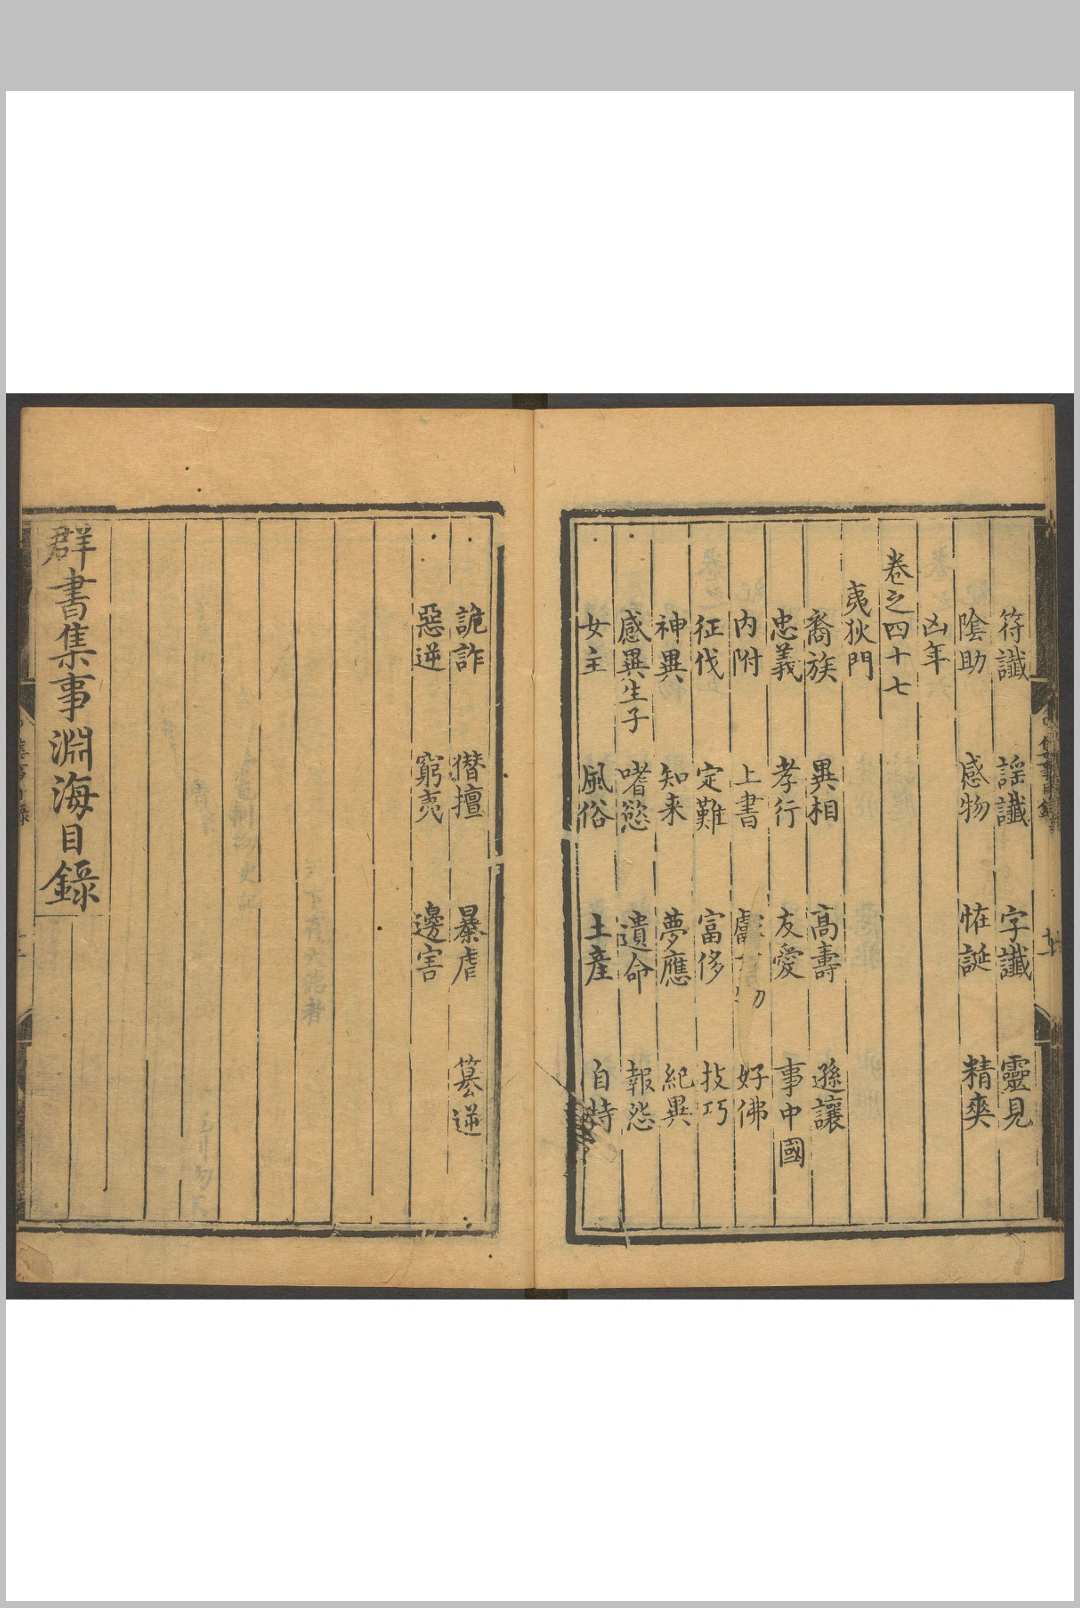 符讖 謡讖 字讖 靈見
陰助 感物 恠誕 精爽
凶年
卷之四十七
夷狄門
裔族 異相 高壽 遜讓
忠義 孝行 友愛 事中國
内附 上書 好佛
征伐 定難 富侈 技巧
神異 知来 夢應 紀異
感異生子 嗜慾 遺命 報怨
女主 風俗 土產 自恃
詭詐 僣擅 暴虐 篡逆
惡逆 窮夷 邊害
群書集事淵海目錄